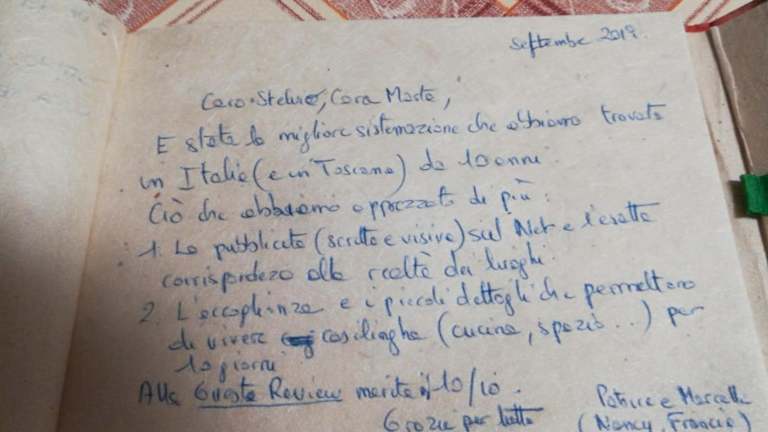 Septembe 2019.
Caro Stefano, Cara Marta,
E stata la migliore sistemazione che abbiamo trovato
in Italia (e in Toscana) da 10 anni.
Ciò che abbiamo apprezzato di più :
1. La pubblicata (scritta e visiva) sul Net e l'esatta
corrispondeza alla realtà dei luoghi.
2. L'accoglienza e i piccoli dettagli che permettono
di vivere (cucina, spazio...) per
10 giorni
Alla Guesta Review merita il 10/10.
Grazie per tutto
Patrice e Marcelle
(Nancy, Francia)